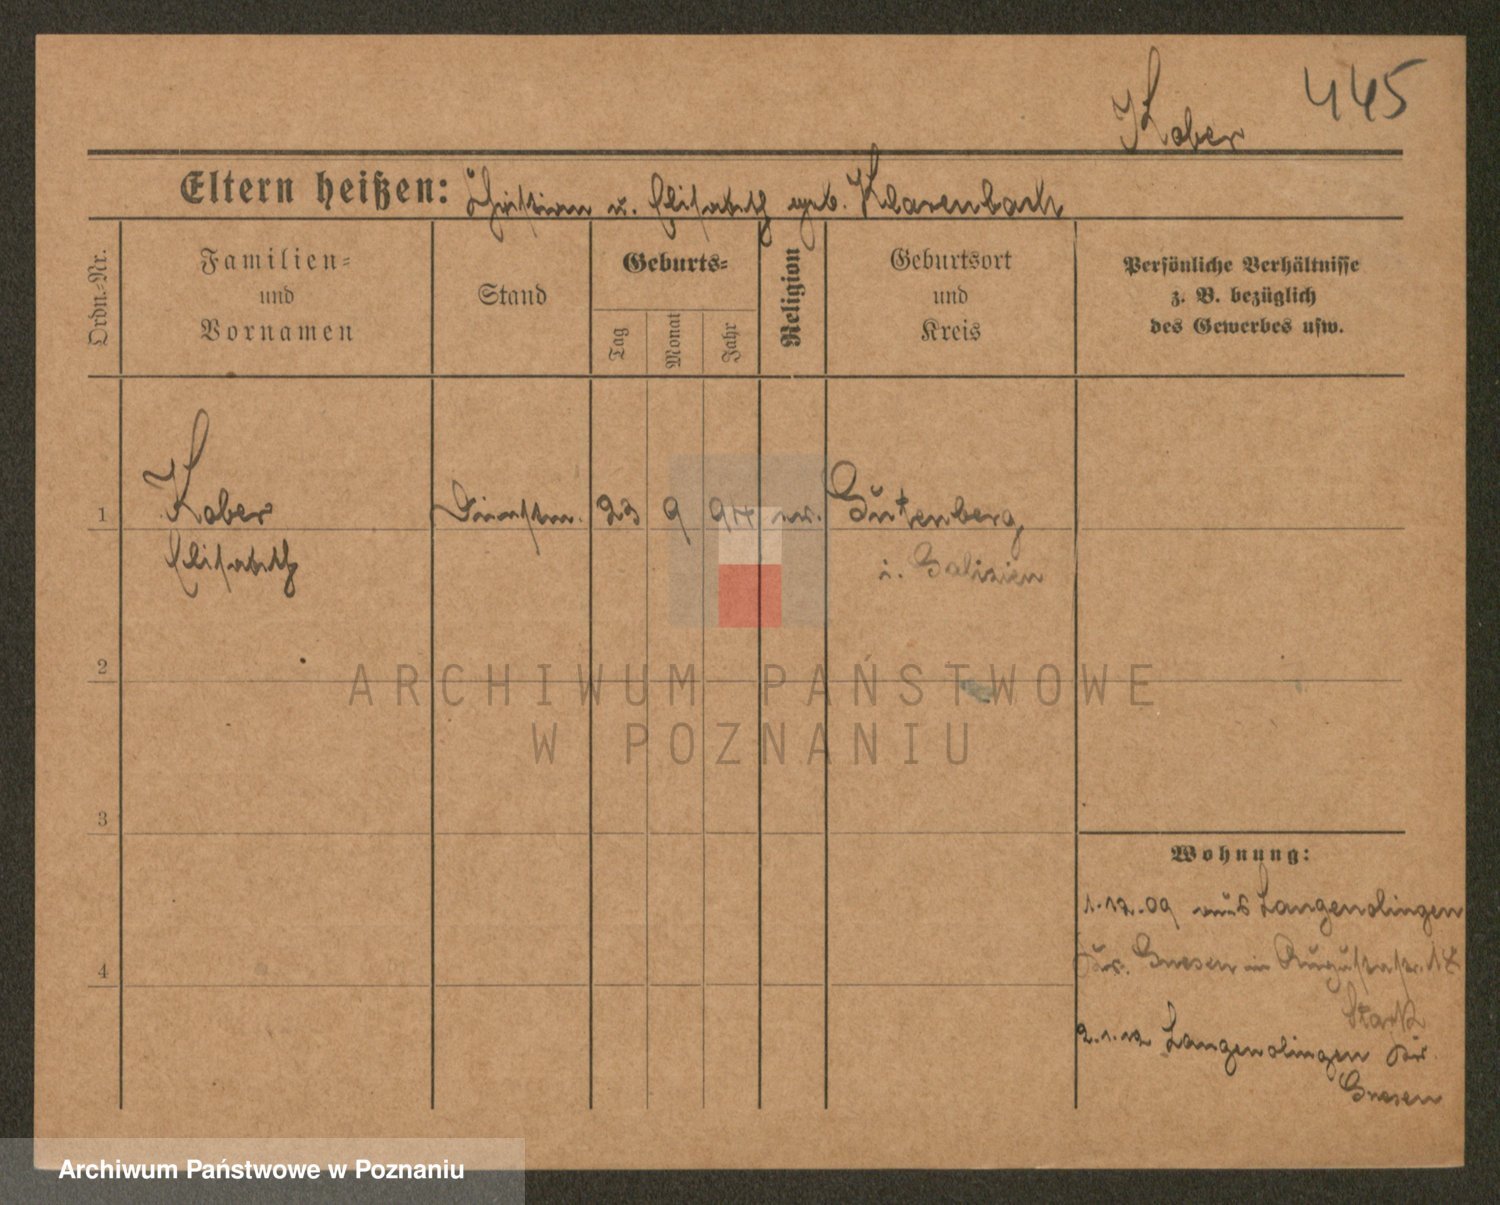 445
Kober
Eltern heißen: Christian u. Elisabeth geb. Klarenbach
Ordn.-Nr.
Familien-
und
Vornamen
Stand
Geburts-
Tag
Monat
Jahr
Religion
Geburtsort
und
Kreis
Persönliche Verhältnisse
z. B. bezüglich
des Gewerbes usw.
1 Kober Dienstm. 23 9 94 ev. Gutenberg
Elisabeth i. Galizien
2
3
4
Wohnung:
1.12.09 aus Langenolingen
Kr. Gnesen in Augustastr.
Stark
2.1.12 Langenolingen Kr.
Gnesen
ARCHIWUM PAŃSTWOWE
W POZNANIU
Archiwum Państwowe w Poznaniu